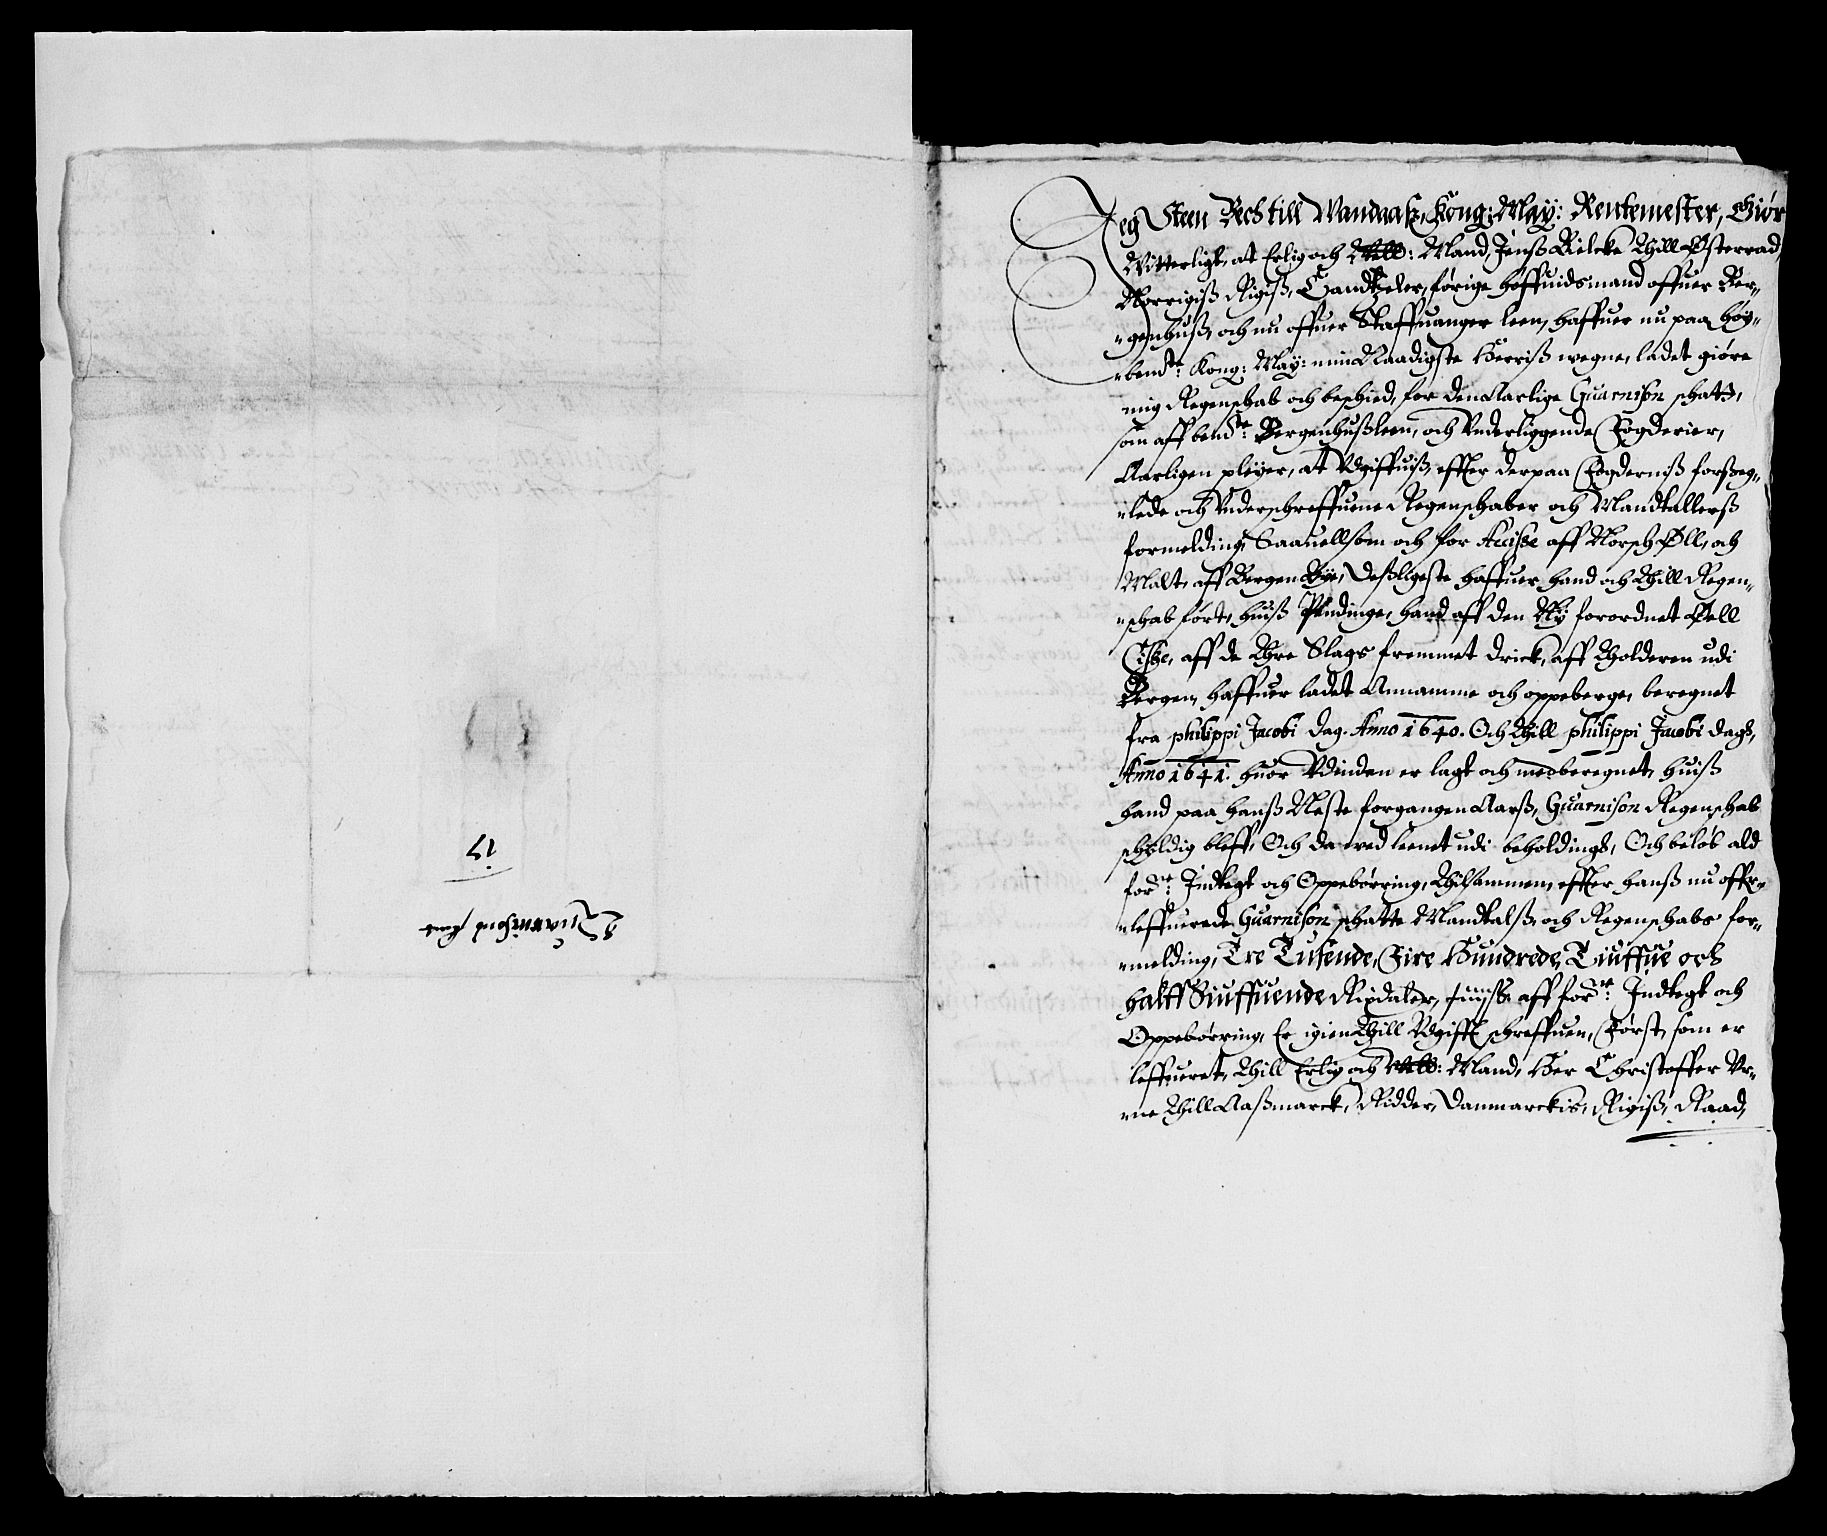 17
Jeg Steen Bech till Wandaaß, Kong: May: Rentemester, Giør
Witterligt, at Erlig och Welb: Mand, Jenß Bielcke Thill Østerraad,
Norrigiß Rigiß, Candtzeler, førige høffuidsmand offuer Ber„
„genhuß, och nu offuer Staffuanger leen, haffuer nu paa høg„
„bemte: Kong: May: min Naadigste Herriß wegne, ladet giøre
mig Regenschab och beschied, for den Aarlige Guarnison schatt,
som aff bemte: Bergenhuß leen, och Underliggende Fogderier,
Aarligen pleyer, at Udgiffuiß, effter derpaa Fogderniß forßeg„
„lede och Underschreffuene Regenschaber och Mandtallerß
formelding, Saauellsom och for Accisse aff Norsch Øll, och
Malt, aff Bergen Bye, Deßligeste haffuer hand och Thill Regen„
„schab ført, huiß Pendinge, hand aff den Ny forordnet Øell
Cisse, aff de Thre Slags fremmet drick, aff Tholderen udi
Bergen, haffuer ladet Annamme och oppeberge, beregnet
fra philippi Jacobi dag. Anno 1640. Och Thill philippi Jacobi dags,
Anno 1641. huor Udinden er lagt och medberegnet, huiß
hand paa hanß Neste forgangen Aarß, Guarnison Regenschab
scholdig bleff, Och da wed leenet udi beholdings, Och beløb ald
forne: Indtegt och Oppebørring, Thilsammen, effter hanß nu offr„
„leffuerede Guarnison schatte Mandtalß och Regenschabs for„
„melding, Tre Tusende, Fire Hundrede, Tiuffue och
halff Siuffuende Rixdaler, aff forne: Indtegt och
Oppebørring, Er igien Thill Udgifft schreffuen, Først, som er
leffueret, Thill Erlig och Welb: Mand, Her Christoffer Ur„
„ne Thill Aaßmarck, Ridder, Danmarckis, Rigiß, Raad,